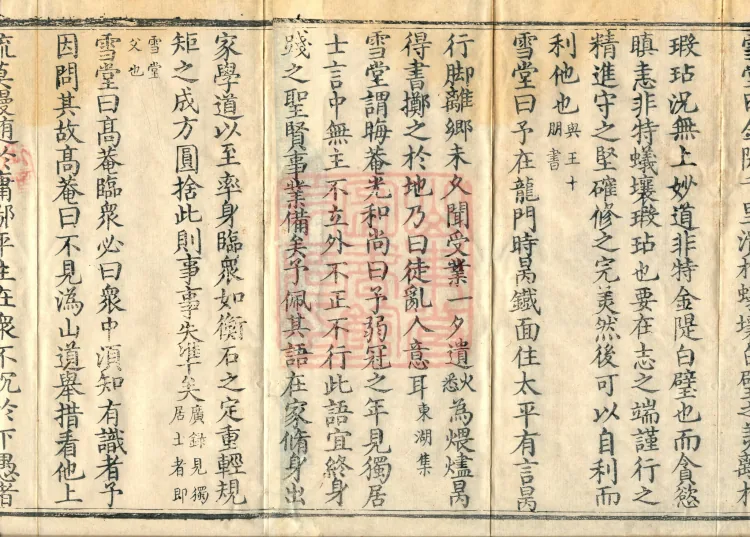 瑕玷況無上妙道非特金隄白璧也而貪慾
瞋恚非特蟻壤瑕玷也要在志之端謹行之
精進守之堅確修之完美然後可以自利而
利他也與王十朋書
雪堂曰予在龍門時昺鐵面住太平有言昺
行脚離鄉未久聞受業一夕遺火悉為煨燼昺
得書擲之於地乃曰徒亂人意耳東湖集
雪堂謂晦菴光和尚曰予弱冠之年見獨居
士言中無主不立外不正不行此語宜終身
踐之聖賢事業備矣予佩其語在家脩身出
家學道以至率身臨衆如衡石之定重輕規
矩之成方圓捨此則事事失準矣廣錄見獨居士者即
雪堂父也
雪堂曰髙菴臨衆必曰衆中須知有識者予
因問其故髙菴曰不見溈山道舉措看他上
流莫謾隨於庸鄙平生在衆不沉於下愚者